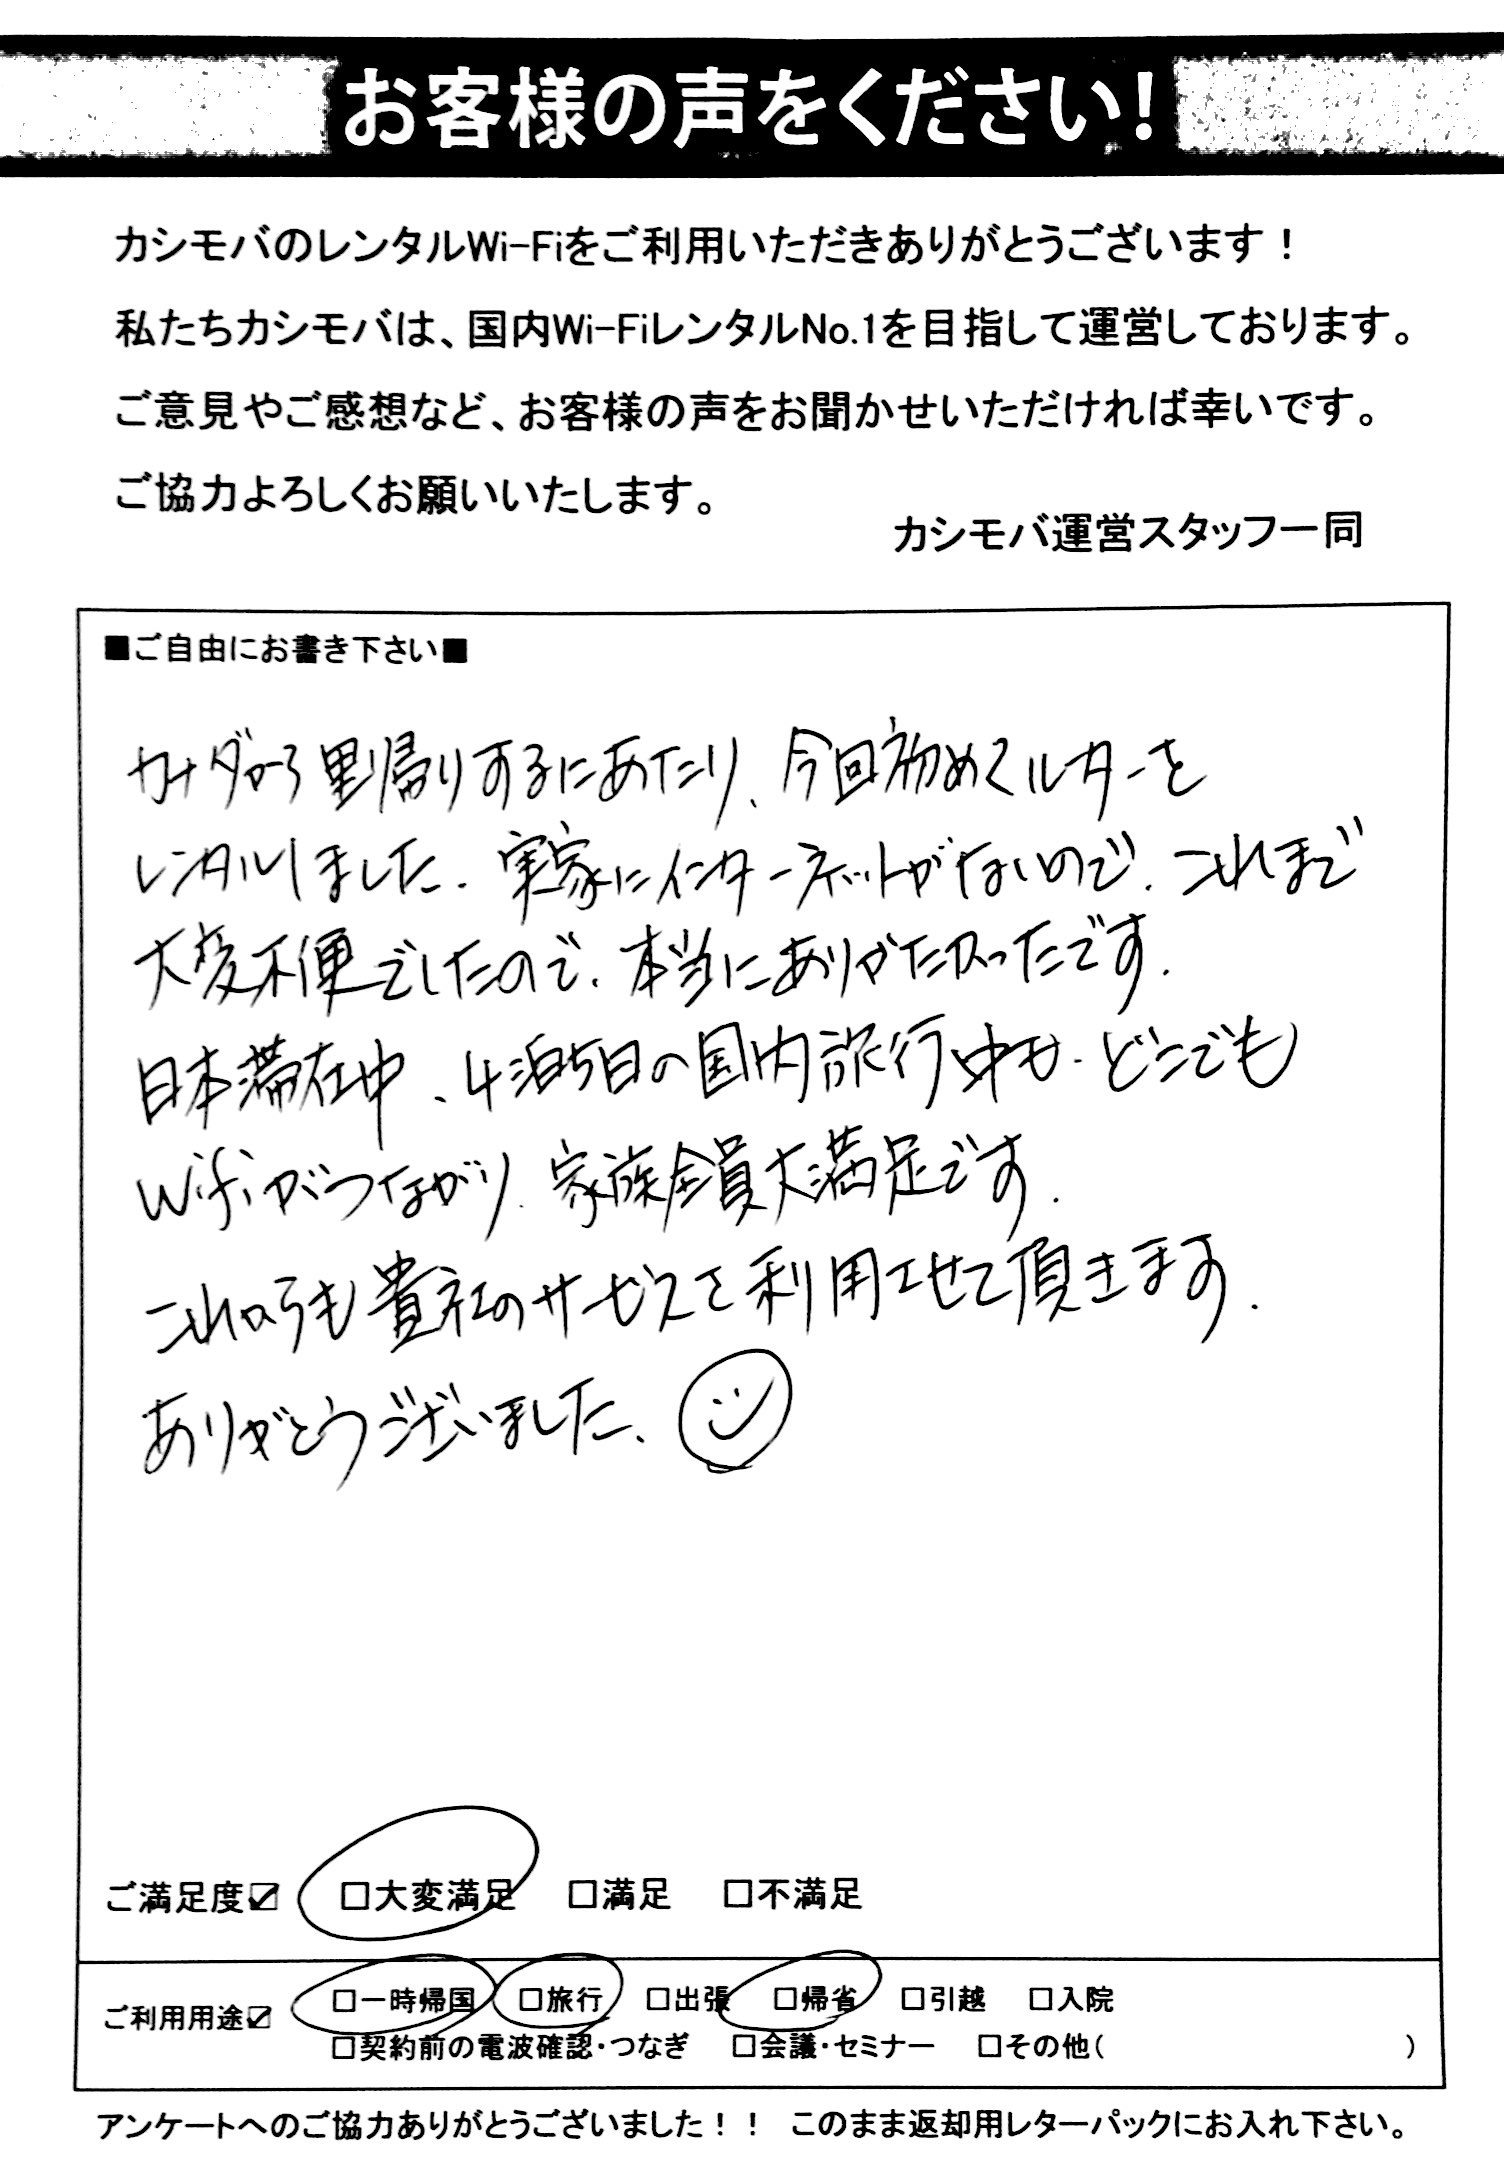 お客様の声をください!
カシモバのレンタルWi-Fiをご利用いただきありがとうございます!
私たちカシモバは、国内Wi-FiレンタルNo.1を目指して運営しております。
ご意見やご感想など、お客様の声をお聞かせいただければ幸いです。
ご協力よろしくお願いいたします。
カシモバ運営スタッフ一同
■ご自由にお書き下さい■
カナダから里帰りするにあたり、今回初めてルーターを
レンタルしました。実家にインターネットがないので、これまで
大変不便でしたので、本当にありがたかったです。
日本滞在中、4泊5日の国内旅行中も、どこでも
Wifiがつながり、家族全員大満足です。
これからも貴社のサービスを利用させて頂きます。
ありがとうございました。
ご満足度☑ □大変満足 □満足 □不満足
ご利用用途☑ □一時帰国 □旅行 □出張 □帰省 □引越 □入院
□契約前の電波確認・つなぎ □会議・セミナー □その他( )
アンケートへのご協力ありがとうございました!! このまま返却用レターパックにお入れ下さい。